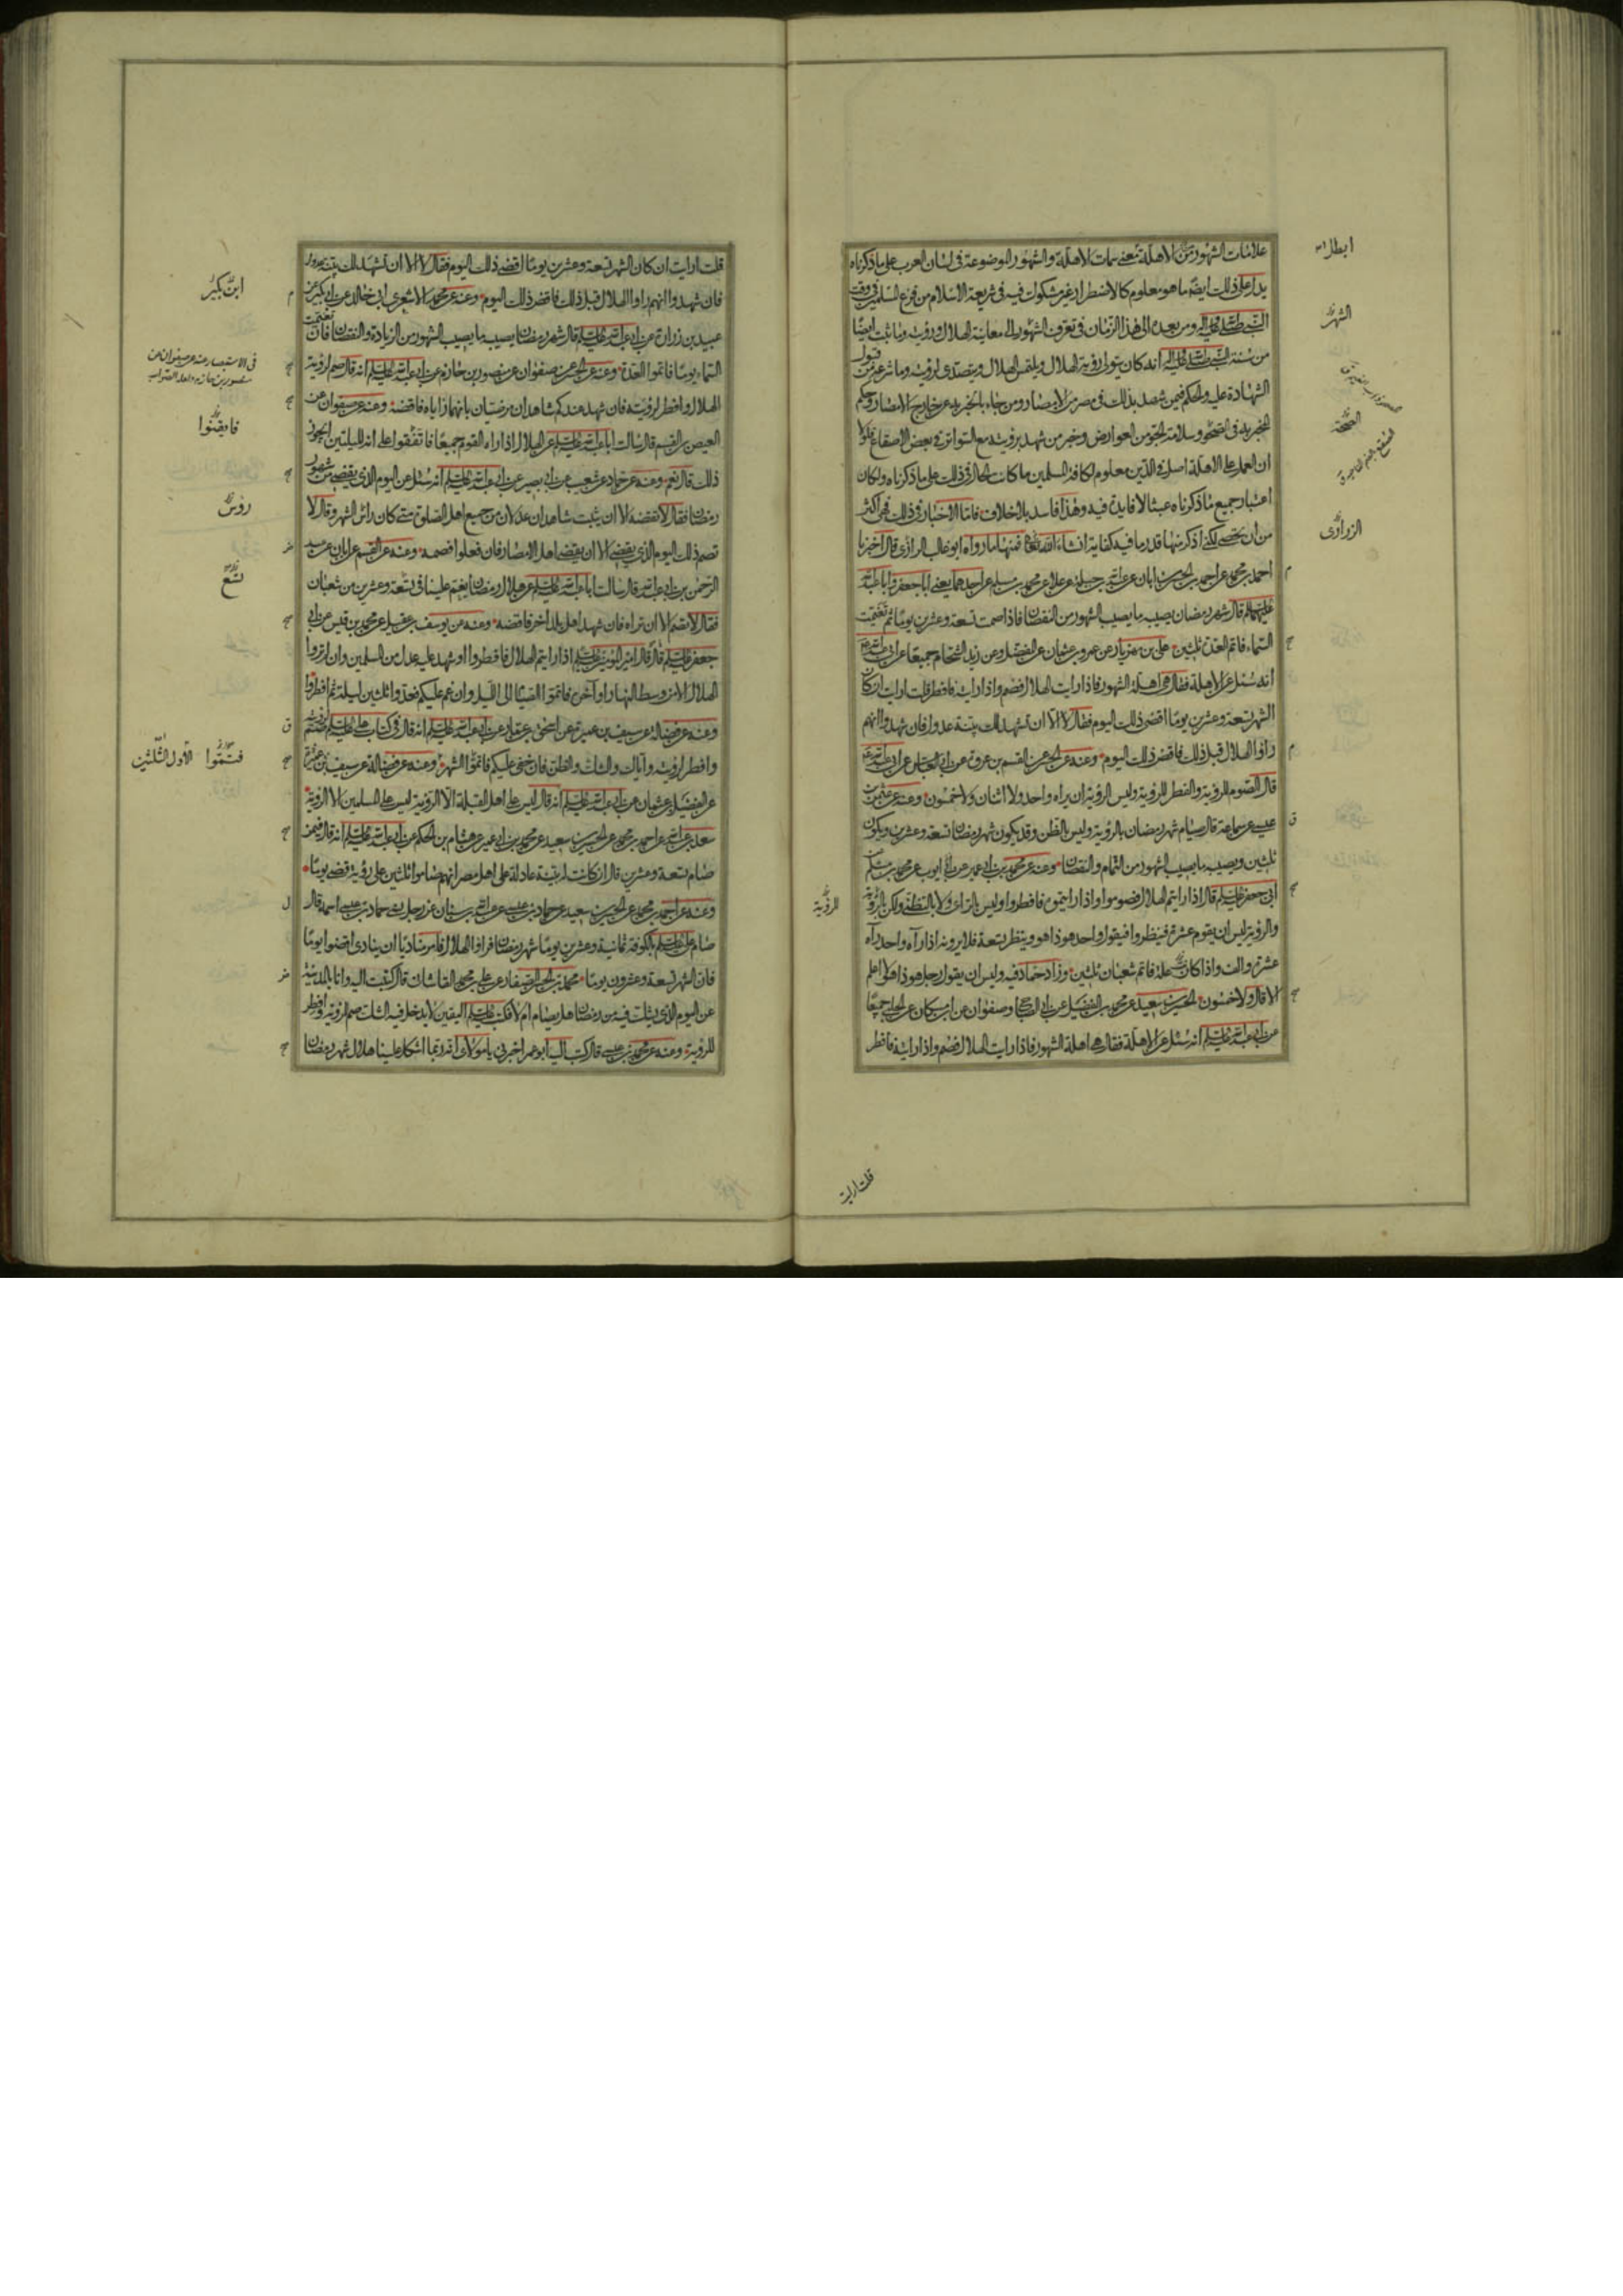 علامات الشهور من الاهلة تعنى سمات الاهلة والشهور الموضوعة فى لسان العرب على ما ذكرناه
يدل على ذلك ايضا ما هو معلوم كالاضطرار غير مشكوك فيه فى شريعة الاسلام من فزع المسلمين فى وقت
النبى صلى الله عليه واله ومن بعده الى هذا الزمان فى تعرف الشهور الى معاينة الهلال ورؤيته وما ثبت ايضا
من سنة النبى صلى الله عليه واله انه كان يتولى رؤية الهلال ويلتمس الهلال ويتصدى لرؤيته وما شرعه من قبول
الشهادة عليه والحكم فيمن شهد بذلك فى مصر من الامصار ومن جاء بالخبر به عن خارج الامصار وحكم
المخبر به فى الصحو وسلامة الجو من العوارض وخبر من شهد برؤيته مع التواتر فى بعض الاصقاع فلولا
ان العمل على الاهلة اصل فى الدين معلوم لكافة المسلمين ما كانت الحال فى ذلك على ما ذكرناه ولكان
اعتبار جميع ما ذكرناه عبثا لا فايدة فيه وهذا فاسد بلا خلاف فاما الاخبار فى ذلك فهى اكثر
من ان تحصى لكنى اذكر منها قدر ما فيه كفاية انشاء الله تعالى فمنها ما رواه ابو غالب الرازى قال اخبرنا
احمد بن محمد عن احمد بن الحسن بن ابان عن عبد الله بن جبلة عن علا عن محمد بن مسلم عن احدهما يعنى ابا جعفر وابا عبد الله
عليهما السلم قال شهر رمضان يصيبه ما يصيب الشهور من النقصان فاذا صمت تسعة وعشرين يوما ثم تغيمت
السماء فاتم العدة ثلثين على بن مهزيار عن عمرو بن عثمان عن المفضل وعن زيد الشحام جميعا عن ابى عبد الله ع
انه سئل عن الاهلة فقال هى اهلة الشهور فاذا رايت الهلال فصم واذا رايته فافطر قلت ارايت ان كان
الشهر تسعة وعشرين يوما اقضى ذلك اليوم فقال لا الا ان تشهد لك بينة عدول فان شهدوا انهم
راوا الهلال قبل ذلك فاقض ذلك اليوم وعنه عن الحسن عن القسم بن عروة عن ابى العباس عن ابى عبد الله ع
قال الصوم للرؤية والفطر للرؤية وليس الرؤية ان يراه واحد ولا اثنان ولا خمسون وعنه عن عثمن بن
عيسى عن سماعة قال صيام شهر رمضان بالرؤية وليس بالظن وقد يكون شهر رمضان تسعة وعشرين ويكون
ثلثين ويصيبه ما يصيب الشهور من التمام والنقصان وعنه عن محمد بن ابى عمير عن ابى ايوب عن محمد بن مسلم عن
ابى جعفر عليه السلم قال اذا رايتم الهلال فصوموا واذا رايتموه فافطروا وليس بالراى ولا بالتظنى ولكن بالرؤية
والرؤية ليس ان يقوم عشرة فينظروا فيقول واحد هو ذا هو وينظر تسعة فلا يرونه اذا رآه واحد رآه
عشرة والف واذا كان علة فاتم شعبان ثلثين وزاد حماد فيه وليس ان يقول رجل هو ذا هو لا اعلم
الا قال ولا خمسون الحسين بن سعيد عن محمد بن الفضيل عن ابى الصباح وصفوان عن ابن مسكان عن الحلبى جميعا
عن ابى عبد الله عليه السلم انه سئل عن الاهلة فقال هى اهلة الشهور فاذا رايت الهلال فصم واذا رايته فافطر
ابطال
الشهر
الصحة
الزرارى
للرؤية
قلت ارايت
قلت ارايت ان كان الشهر تسعة وعشرين يوما اقضى ذلك اليوم فقال لا الا ان تشهد لك بينة عدول
فان شهدوا انهم راوا الهلال قبل ذلك فاقض ذلك اليوم وعنه عن محمد الاشعرى ابى خالد عن ابى بكير عن
عبيد بن زرارة عن ابى عبد الله عليه السلم قال شهر رمضان يصيبه ما يصيب الشهور من الزيادة والنقصان فان تغيمت
السماء يوما فاتموا العدة وعنه عن الحسن عن صفوان عن منصور بن حازم عن ابى عبد الله عليه السلم انه قال صم لرؤية
الهلال وافطر لرؤيته فان شهد عندكم شاهدان مرضيان بانهما راياه فاقضه وعنه عن صفوان عن
العيص بن القسم قال سالت ابا عبد الله عليه السلم عن الهلال اذا راه القوم جميعا فاتفقوا على انه لليلتين ايجوز
ذلك قال نعم وعنه عن حماد عن شعيب عن ابى بصير عن ابى عبد الله عليه السلم انه سئل عن اليوم الذى يقضى من شهر
رمضان فقال لا تقضه الا ان يثبت شاهدان عدلان من جميع اهل الصلوة متى كان راس الشهر وقال لا
تصم ذلك اليوم الذى يقضى الا ان يقضى اهل الامصار فان فعلوا فصمه وعنه عن القسم عن ابان عن عبد
الرحمن بن ابى عبد الله قال سالت ابا عبد الله عليه السلم عن هلال رمضان يغم علينا فى تسعة وعشرين من شعبان
فقال لا تصم الا ان تراه فان شهد اهل بلد اخر فاقضه وعنه عن يوسف بن عقيل عن محمد بن قيس عن ابى
جعفر عليه السلم قال قال امير المؤمنين عليه السلم اذا رايتم الهلال فافطروا او شهد عليه عدل من المسلمين وان لم تروا
الهلال الا من وسط النهار او آخره فاتموا الصيام الى الليل وان غم عليكم فعدوا ثلثين ليلة ثم افطروا
وعنه عن فضالة عن سيف بن عميرة عن اسحق بن عمار عن ابى عبد الله عليه السلم انه قال فى كتاب على عليه السلم صم لرؤيته
وافطر لرؤيته واياك والشك والظن فان خفى عليكم فاتموا الشهر وعنه عن فضالة عن سيف بن عميرة
عن الفضيل بن عثمان عن ابى عبد الله عليه السلم انه قال ليس على اهل القبلة الا الرؤية ليس على المسلمين الا الرؤية
سعد بن عبد الله عن احمد بن محمد عن الحسين بن سعيد عن محمد بن ابى عمير عن هشام بن الحكم عن ابى عبد الله عليه السلم انه قال فيمن
صام تسعة وعشرين قال ان كانت له بينة عادلة على اهل مصر انهم صاموا ثلثين على رؤية قضى يوما
وعنه عن احمد بن محمد عن الحسين بن سعيد عن حماد بن عيسى عن عبد الله بن سنان عن رجل نسى حماد بن عيسى اسمه قال
صام على عليه السلم بالكوفة ثمانية وعشرين يوما شهر رمضان فراوا الهلال فامر مناديا ان ينادى اقضوا يوما
فان الشهر تسعة وعشرون يوما محمد بن الحسن الصفار عن على بن محمد القاشانى قال كتبت اليه وانا بالمدينة
عن اليوم الذى يشك فيه من رمضان هل يصام ام لا فكتب عليه السلم اليقين لا يدخل فيه الشك صم للرؤية وافطر
للرؤية وعنه عن محمد بن عيسى قال كتب اليه ابو عمر اخبرنى يا مولاى انه ربما اشكل علينا هلال شهر رمضان
ابن بكير
فى الاستبصار عنه عن صفوان عن
منصور بن حازم ولعله الصواب
فايقنوا
رؤس
تسع
فتمموا الاول الثلثين